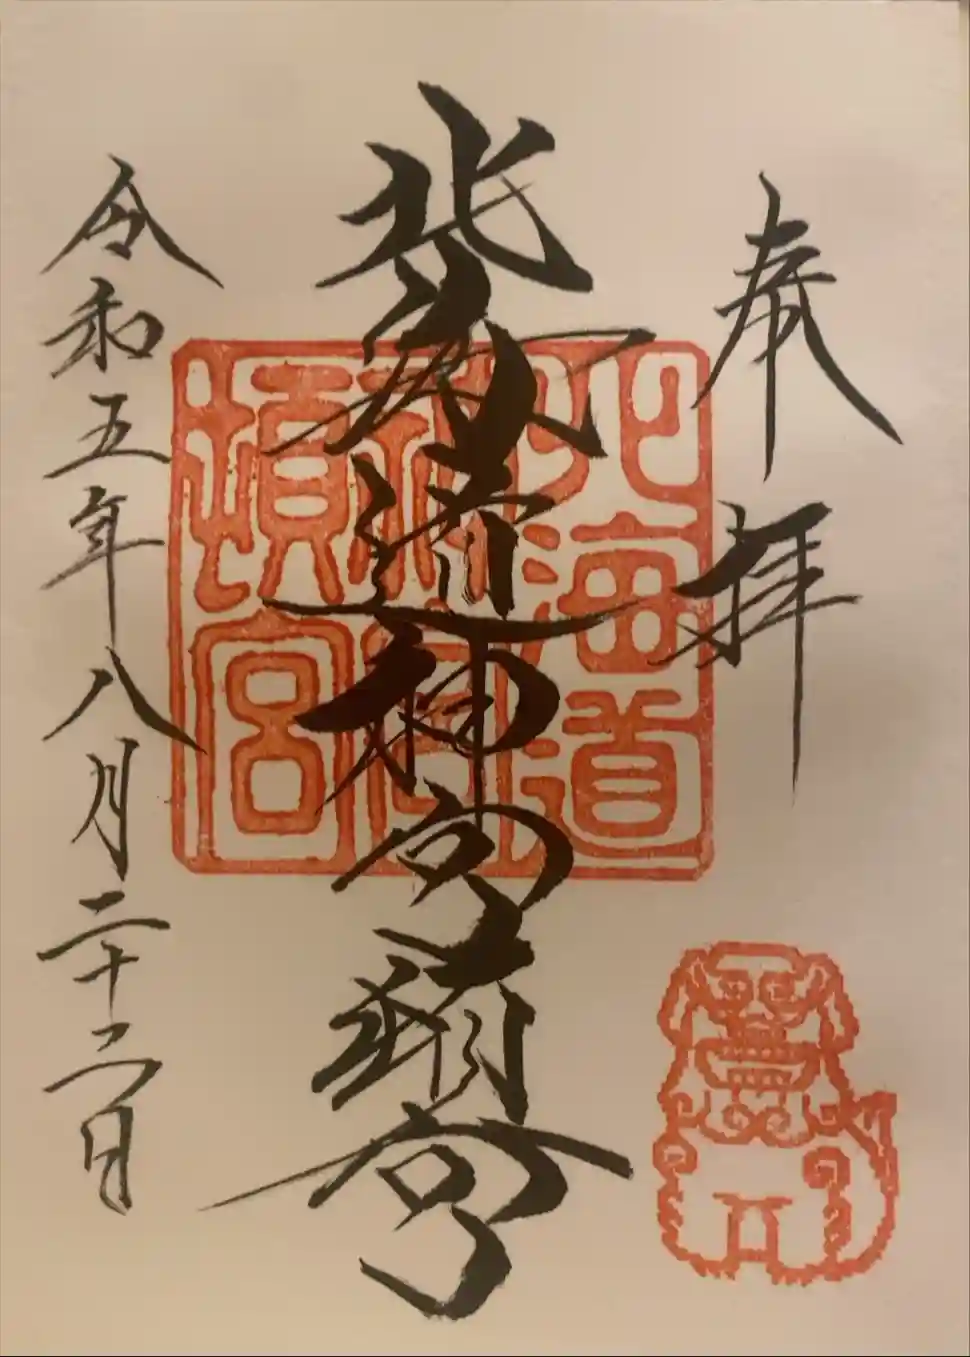 奉拝
北海道神宮頓宮
令和五年八月二十二日
北海道
神宮
頓宮